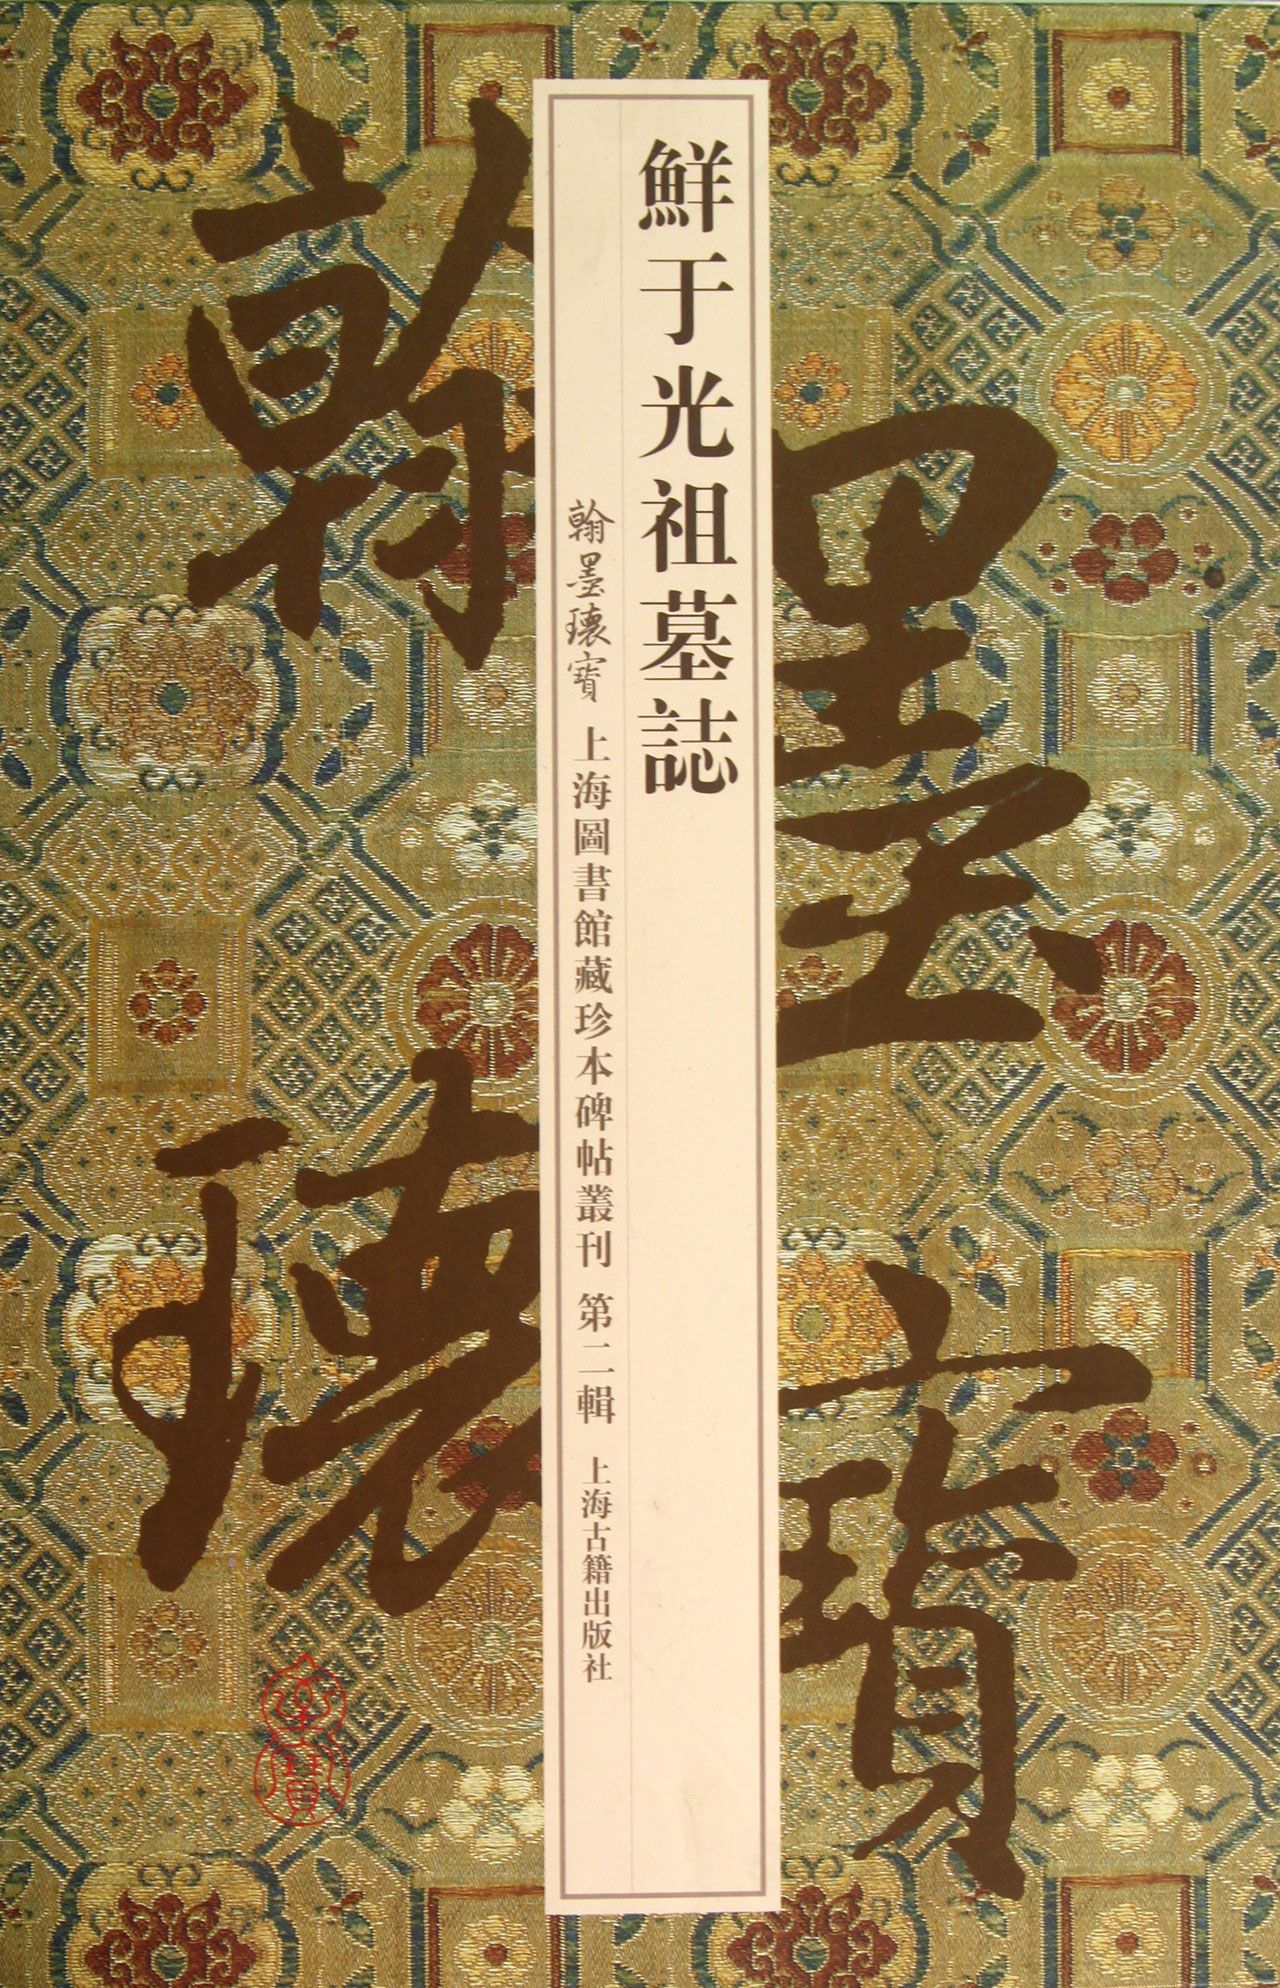 鮮于光祖墓誌
翰墨瓌寶 上海圖書館藏珍本碑帖叢刊 第二輯 上海古籍出版社
翰墨
瓌寶